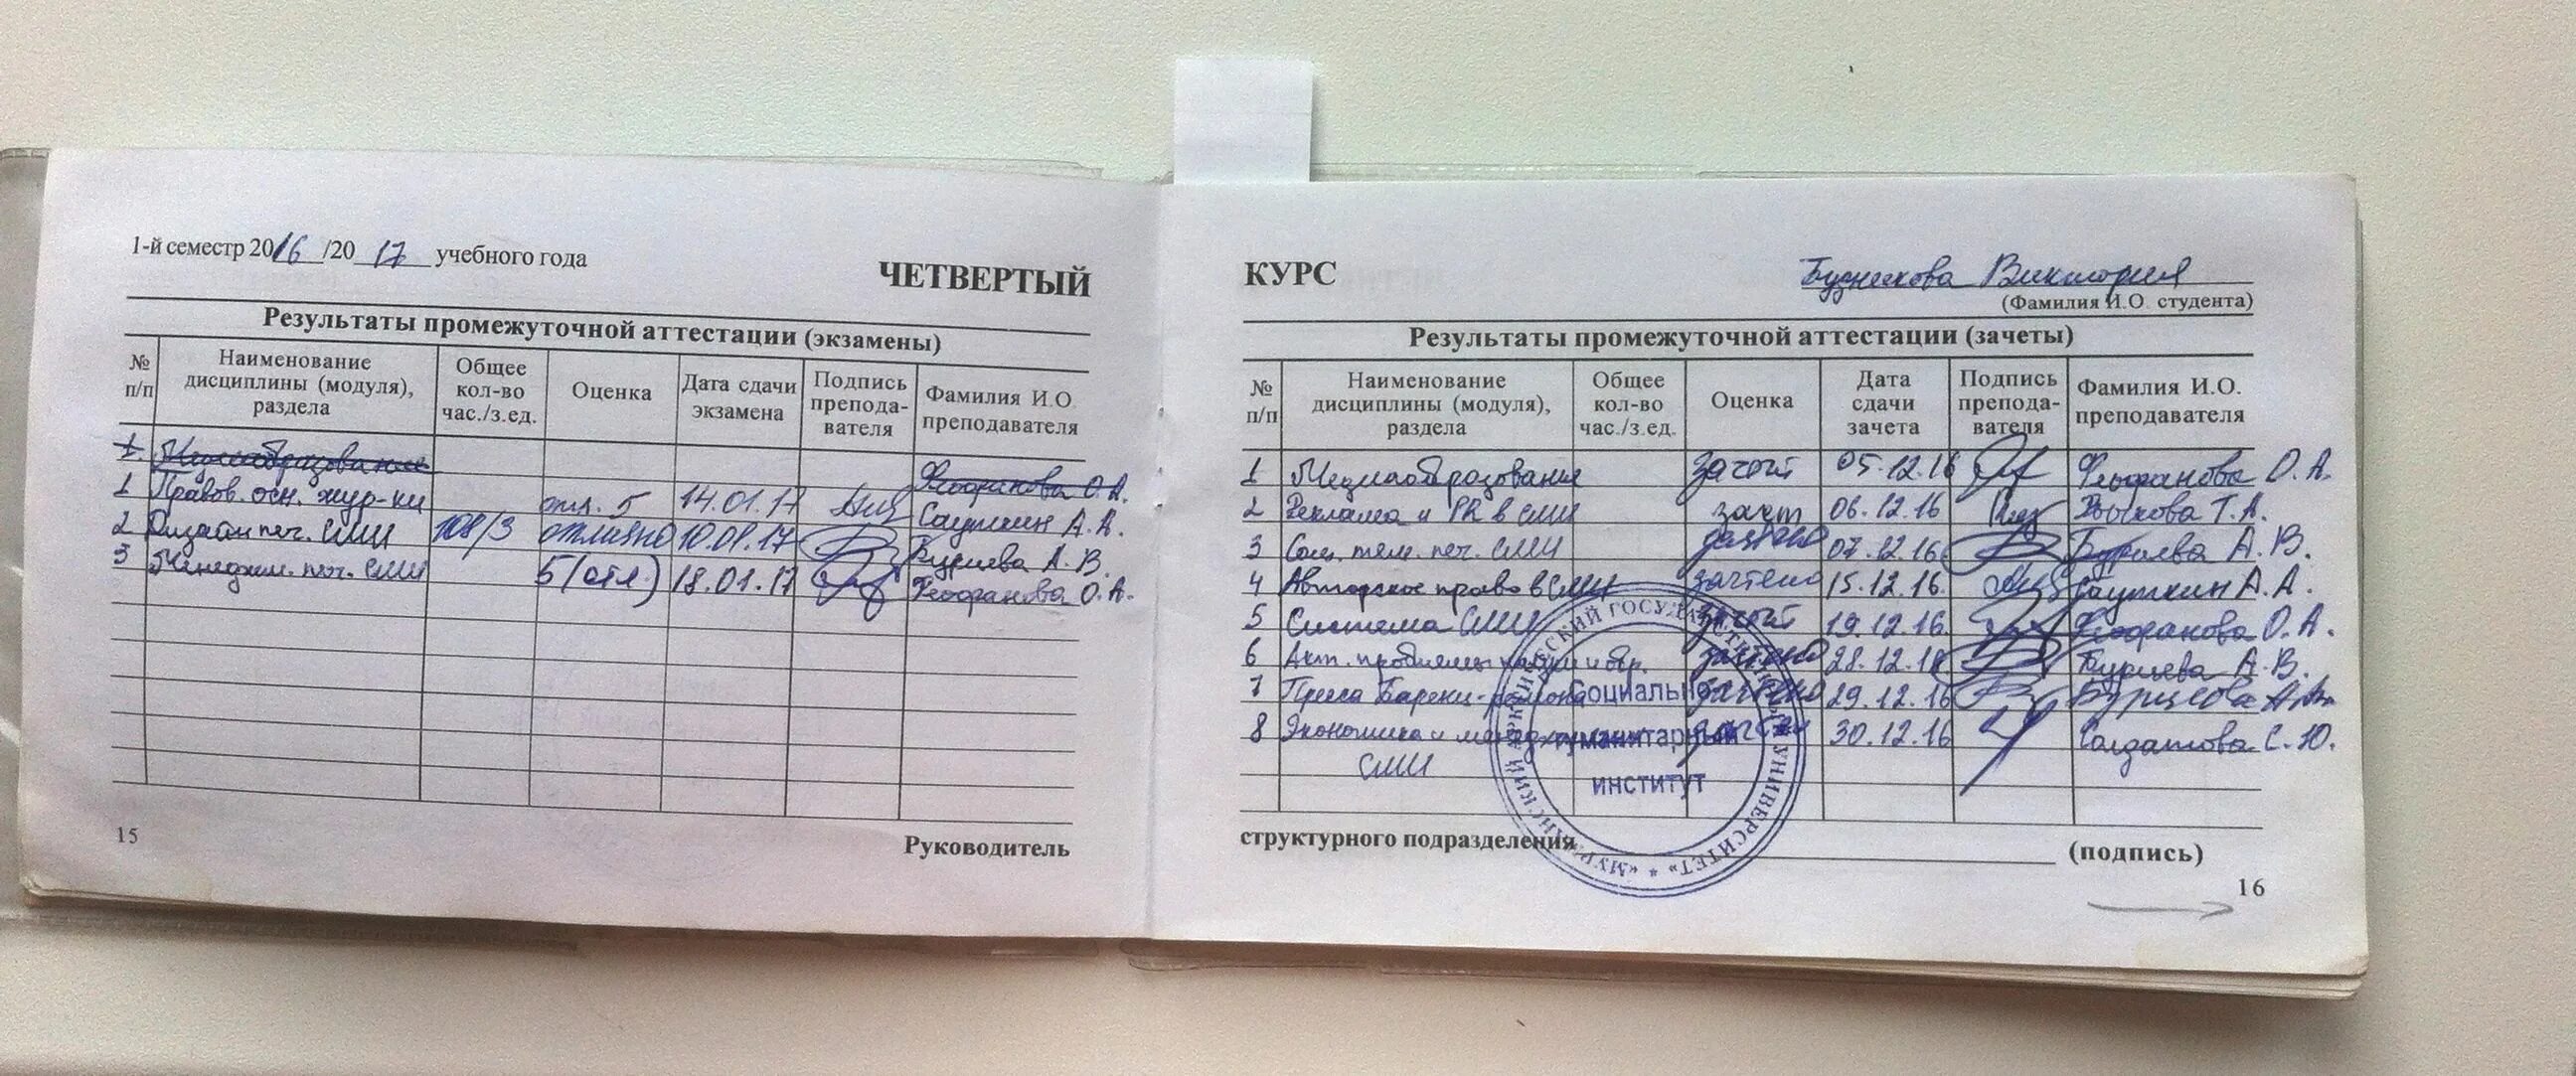 1-й семестр 2016/2017 учебного года
ЧЕТВЕРТЫЙ
Результаты промежуточной аттестации (экзамены)
№ п/п Наименование дисциплины (модуля), раздела Общее кол-во час./з.ед. Оценка Дата сдачи экзамена Подпись препода-вателя Фамилия И.О. преподавателя
1. Медиаобразование Феофанова О.А.
1 Правов. осн. жур-ки отл. 5 14.01.17 Саушкин А.А.
2 Дизайн печ. СМИ 108/3 отлично 10.01.17 А.В.
3 Менеджм. печ. СМИ 5 (отл.) 18.01.17 Феофанова О.А.
15
Руководитель
КУРС
Виктория
(Фамилия И.О. студента)
Результаты промежуточной аттестации (зачеты)
№ п/п Наименование дисциплины (модуля), раздела Общее кол-во час./з.ед. Оценка Дата сдачи зачета Подпись препода-вателя Фамилия И.О. преподавателя
1 Медиаобразование зачет 05.12.16 Феофанова О.А.
2 Реклама и PR в СМИ зачт 06.12.16 Т.А.
3 Соц. тем. печ. СМИ зачтено 07.12.16 А.В.
4 Авторское право в СМИ зачтено 15.12.16. Саушкин А.А.
5 Система СМИ зачет 19.12.16. Феофанова О.А.
6 Акт. проблемы зачтено 28.12.16 А.В.
7 Пресса Баренц-региона зачтено 29.12.16
8 Экономика и менеджмент зачтено 30.12.16 Солдатова С.Ю.
СМИ
Социально-
гуманитарный
институт
«МУРМАНСКИЙ АРКТИЧЕСКИЙ ГОСУДАРСТВЕННЫЙ УНИВЕРСИТЕТ»
структурного подразделения (подпись)
16